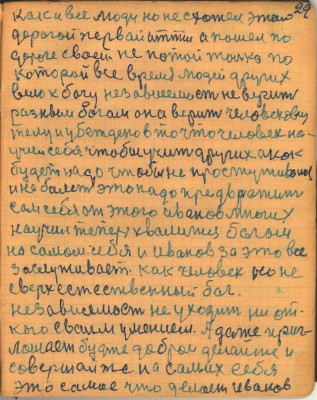 29
как и все люди но не схотел этой
дорогой первай итти а пошел по
дороге своей не потой толко по
которой все время людей других
вело к богу независемость не верит
разным богам она верит человескому
телу и убеждено в то что человек на
учил себя чтобы учит других а как
будет надо чтобы не простуживался
и не болет это надо предвратит
сам себя от этого иванов многих
научил теперь хвалится богам
на самом себя и иванов за это все
заслуживает. как человек но не
сверхестественный бог.
независемость не уходит ни от
кого своим умением. А даже приг
лошает будте добрые делайте и
совершайте на самих себя
это самое что делает иванов